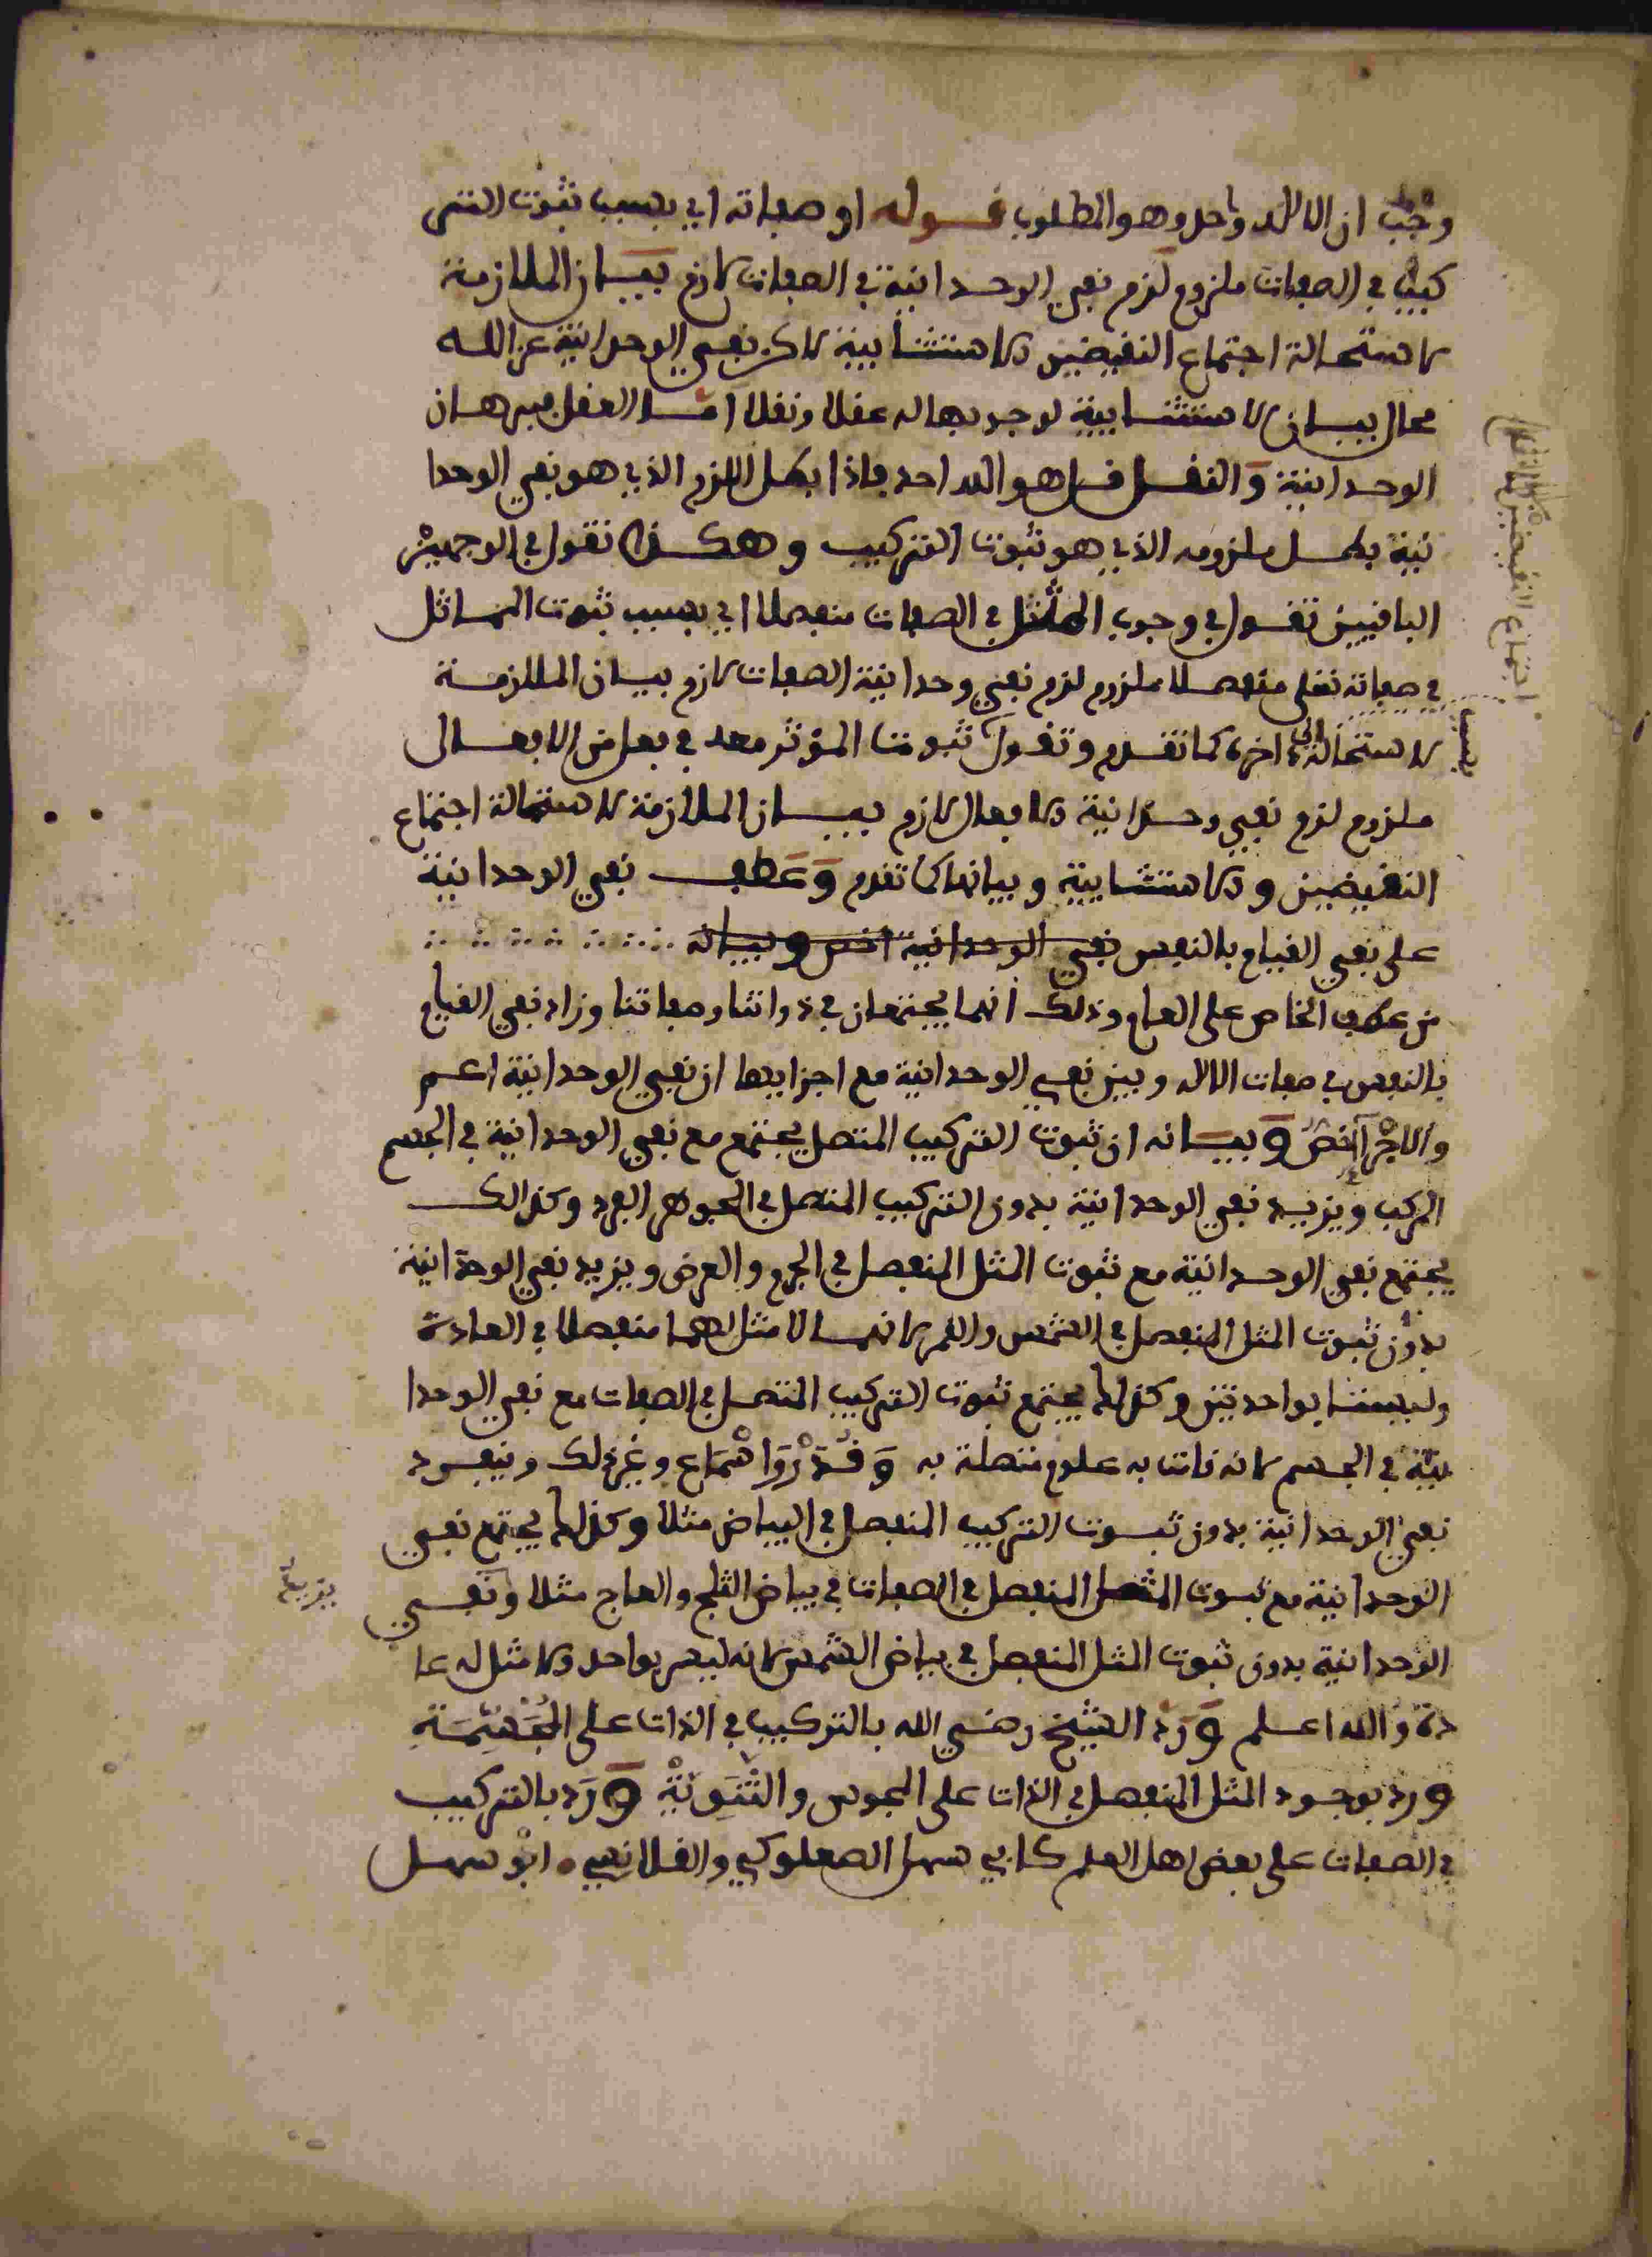 وجب ان الاله واحد وهو المطلوب قوله او صفاته اي بسبب ثبوت التر
كيب في الصفات ملزوم لزم نفي الوحدانية في الصفات لازم بيان الملازمة
لاستحالة اجتماع النقيضين والاستثنابية لاكن نفي الوحدانية عن الله
محال بيان الاستثنابية لوجوبها له عقلا ونقلا اما العقل فبرهان
الوحدانية والنقل قل هو الله احد فاذا بطل اللازم الذي هو نفي الوحدا
نية بطل ملزومه الذي هو ثبوت التركيب وهكذا نقول في الوجهين
الباقيين تقول في وجوب المثل في الصفات منفصلا اي بسبب ثبوت المماثل
في صفاته تعلى منفصلا ملزوم لزم نفي وحدانية الصفات لازم بيان الملازمة
لاستحالة الى اخره كما تقدم وتقول ثبوت المؤثر معه في فعل من الافعال
ملزوم لزم نفي وحدانية الافعال لازم بيان الملازمة لاستحالة اجتماع
النقيضين والاستثنابية وبيانها كما تقدم وعطف نفي الوحدانية
على نفي القيام بالنفس نفي الوحدانية اخص وبيانه
من عطف الخاص على العام وذلك انهما يجتمعان في ذواتنا وصفاتنا وزاد نفي القيام
بالنفس في صفات الاله وبين نفي الوحدانية مع اجزايها ان نفي الوحدانية اعم
والاجزا اخص وبيانه ان ثبوت التركيب المتصل يجتمع مع نفي الوحدانية في الجسم
المركب ويزيد نفي الوحدانية بدون التركيب المتصل في الجوهر الفرد وكذالك
يجتمع نفي الوحدانية مع ثبوت المثل المنفصل في الجرم والعرض ويزيد نفي الوحدانية
بدون ثبوت المثل المنفصل في الشمس والقمر لانهما لا مثل لهما منفصلا في العادة
وليستا بواحدتين وكذلك يجتمع ثبوت التركيب المتصل في الصفات مع نفي الوحدا
نية في الجسم لانه ذات به علوم متصلة به وقدروا سماع وغير ذلك وينفرد
نفي الوحدانية بدون ثبوت التركيب المنفصل في البياض مثلا وكذلك يجتمع نفي
الوحدانية مع ثبوت المثل المنفصل في الصفات في بياض الثلج والعاج مثلا ونفي
الوحدانية بدون ثبوت المثل المنفصل في بياض الشمس لانه ليس بواحد ولا مثل له عا
دة والله اعلم ورد الشيخ رضي الله بالتركيب في الذات على المجسمة
ورد بوجود المثل المنفصل في الذات على المجوس والثنوية ورد بالتركيب
في الصفات على بعض اهل العلم كابي سهل الصعلوكي والقلانسي ابو سهل
اجتماع النقيضين
يزيد